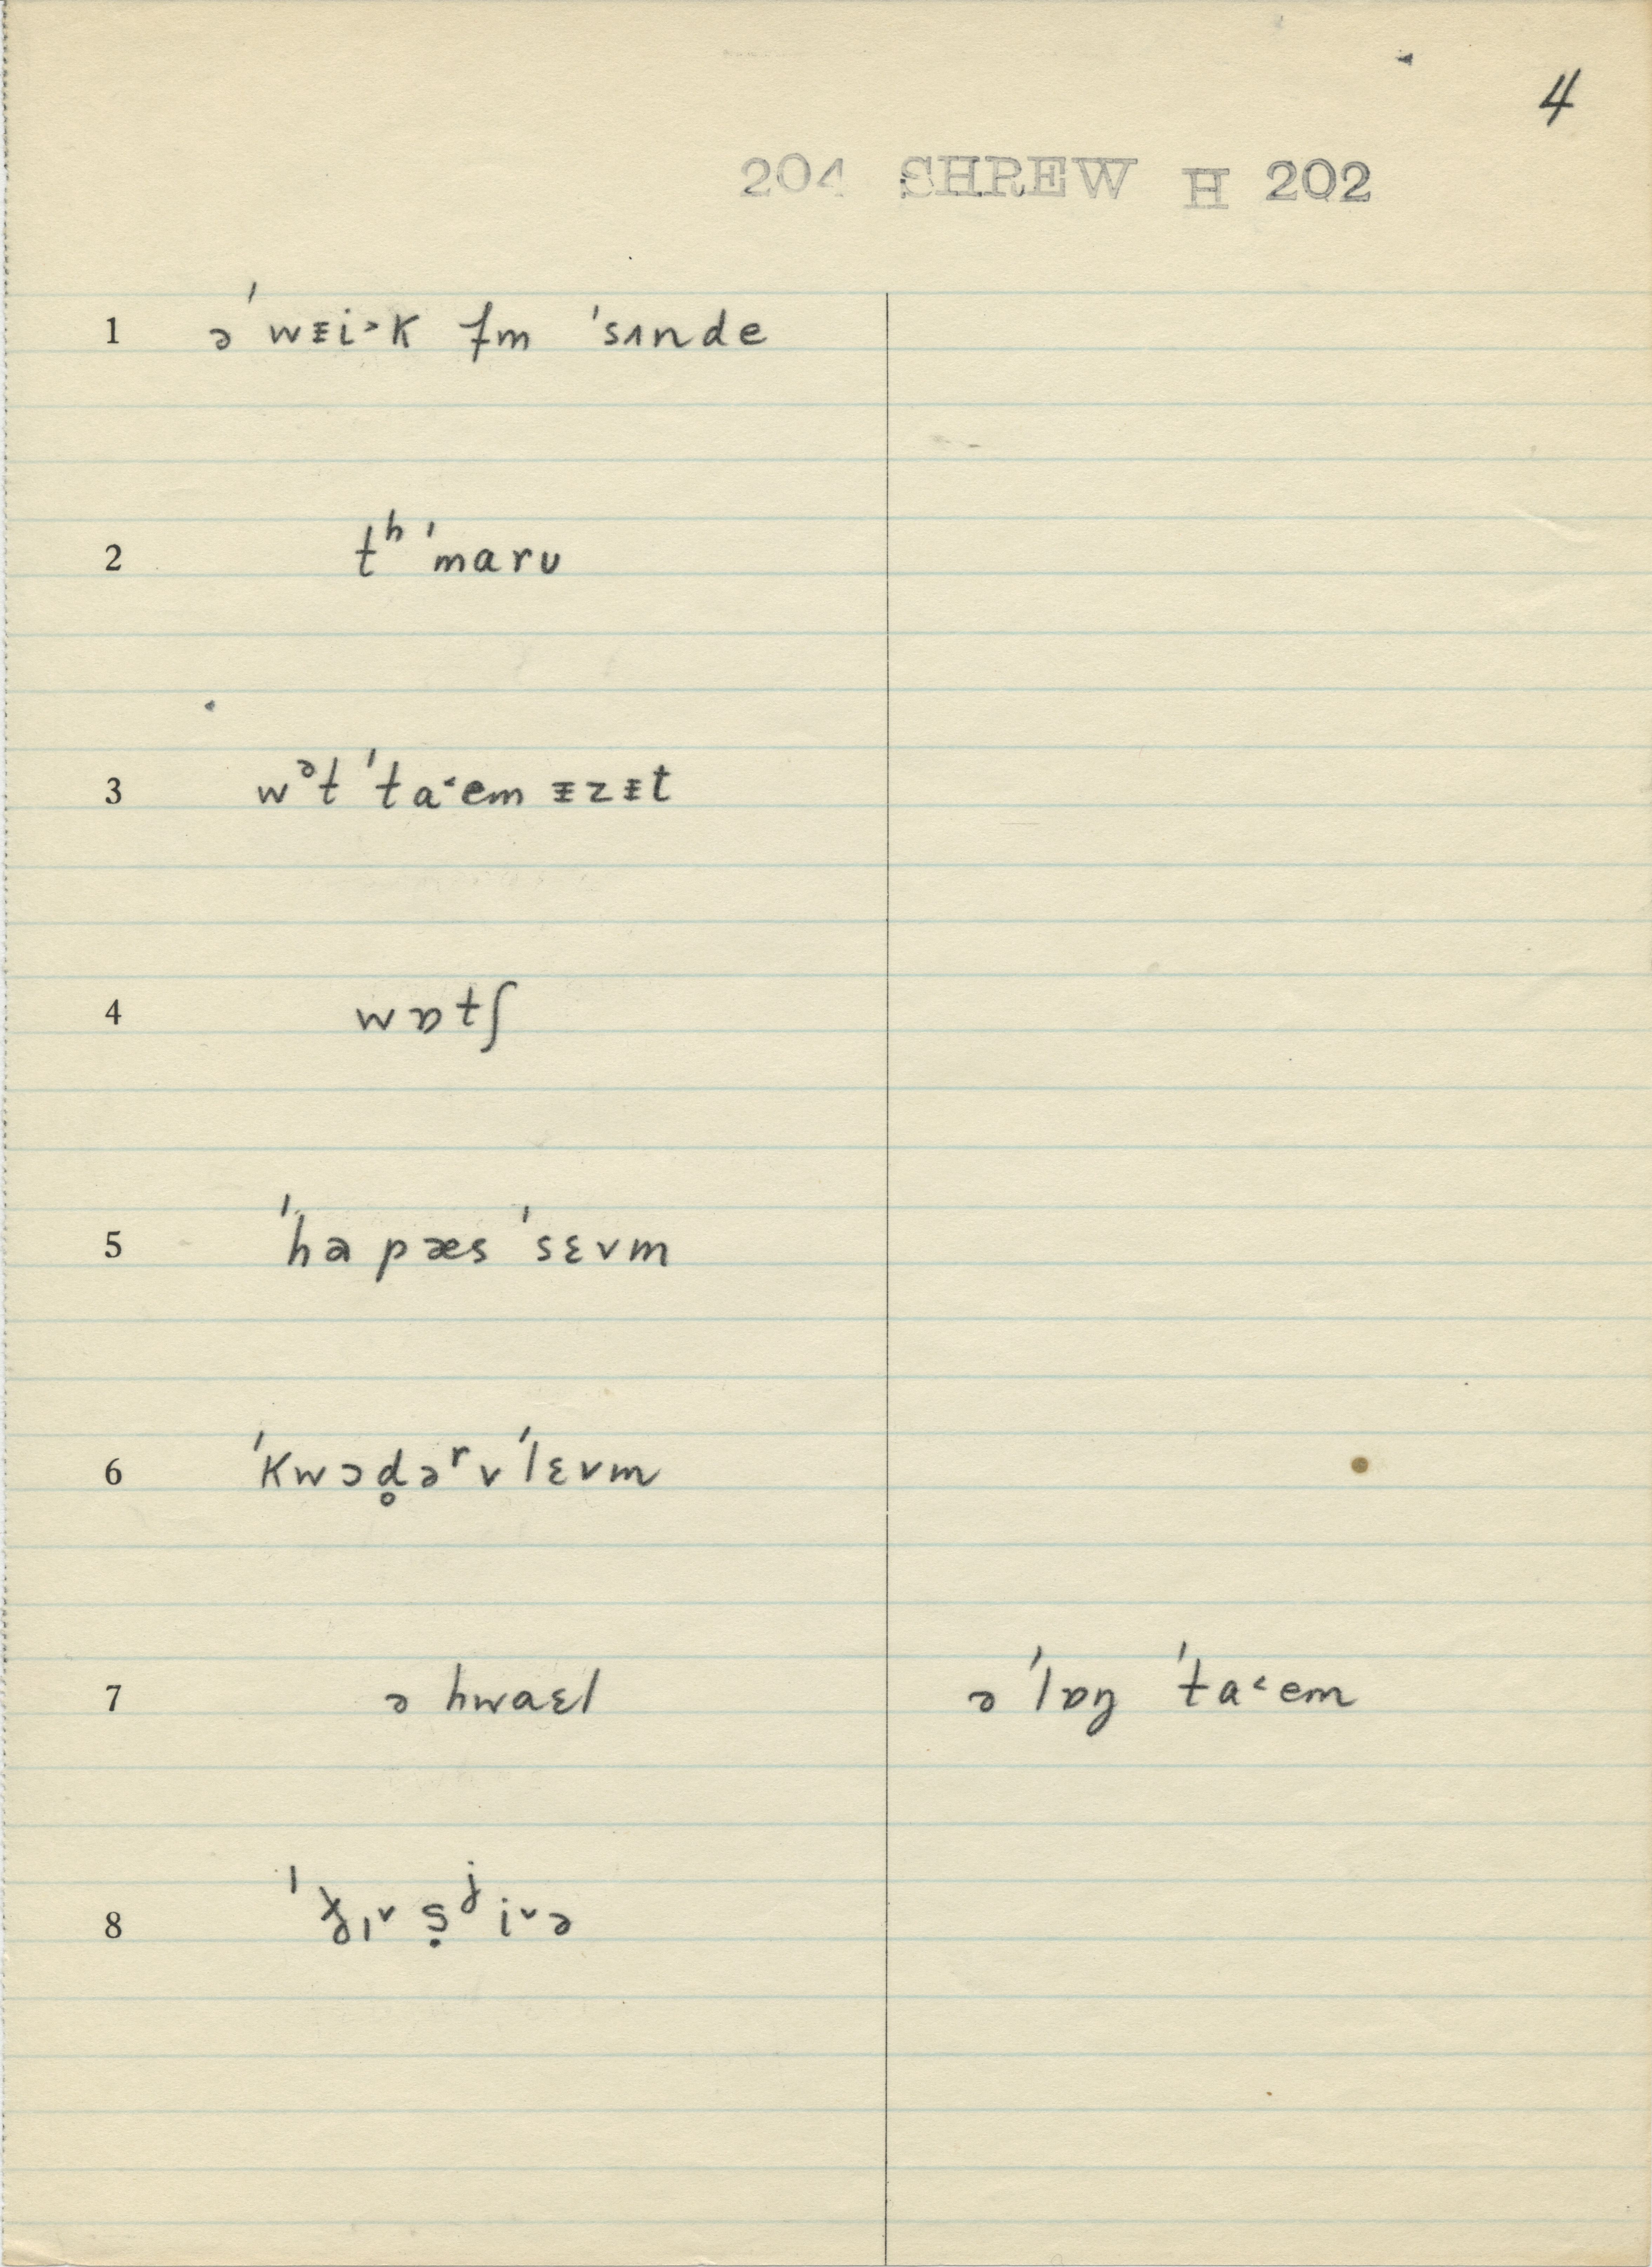 4
204 SHREW H 202
1 ə ˈwᵻi˃k fm ˈsʌnde
2 tʰ ˈmarʊ
3 wᵊt ˈta˂em ᵻzᵻt
4 wɒtʃ
5 ˈhɑ pæs ˈsɛvm
6 ˈkwɔd̥əʳ v ˈlɛvm
7 ə hwaɛl ə ˈlɒŋ ˈta˂em
8 ˈɪ˅ ṣʲi˅ə